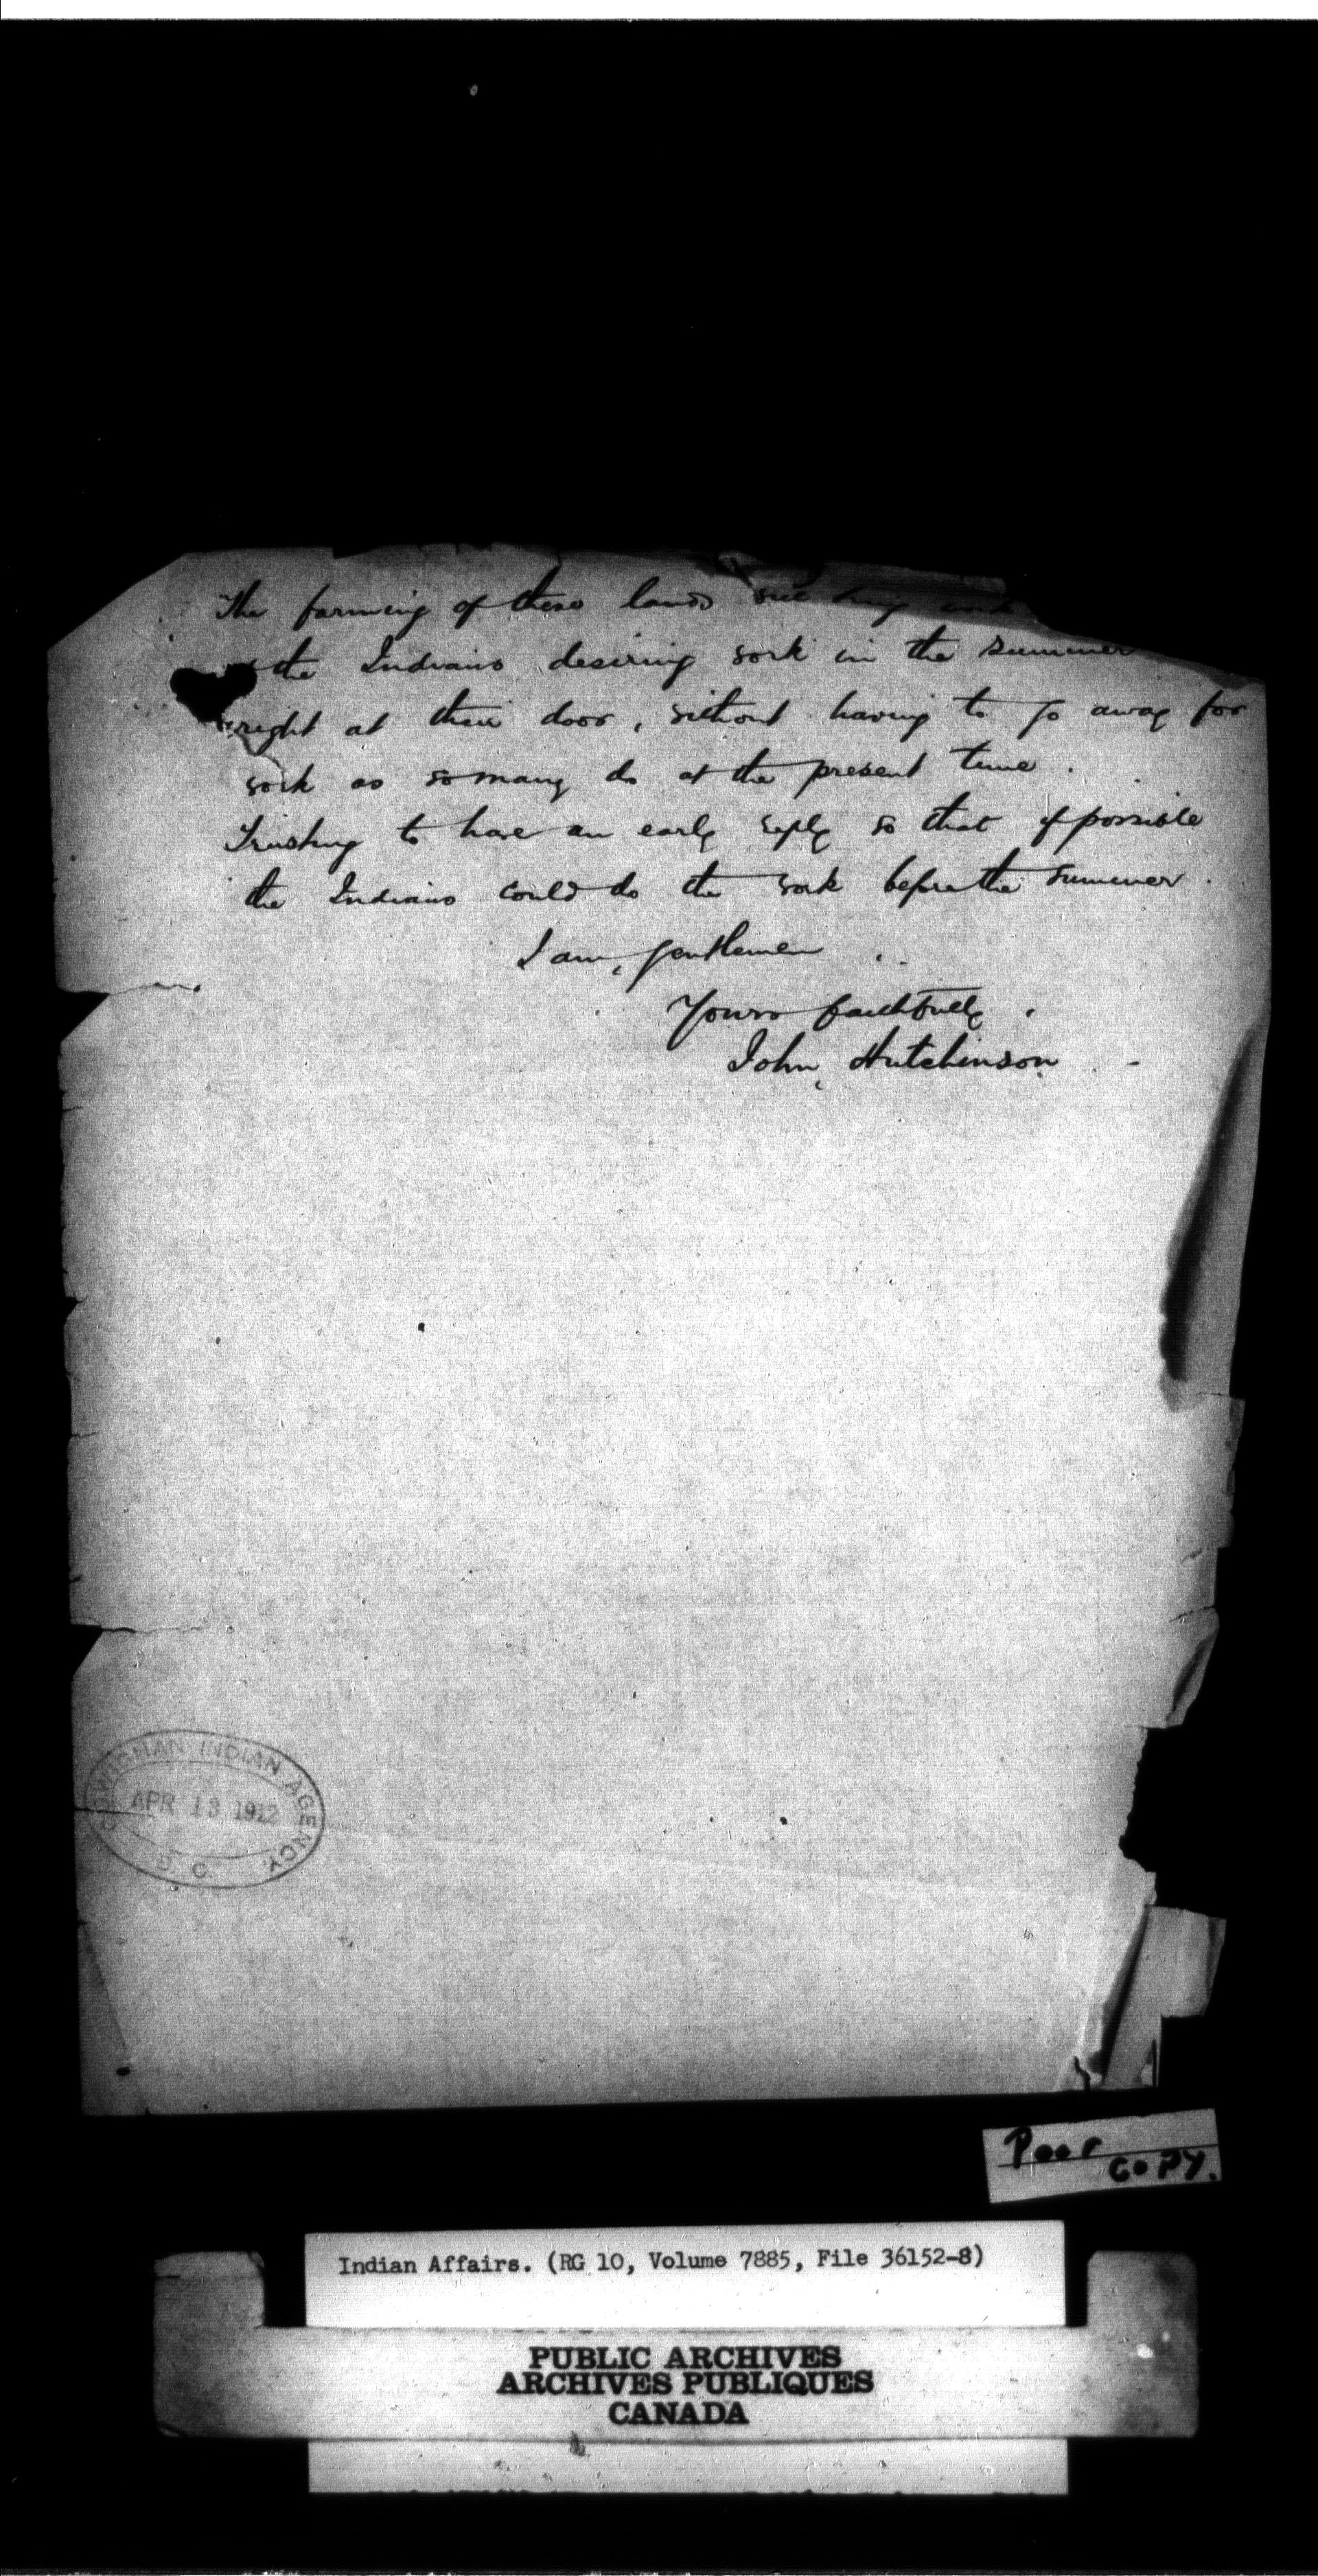 The farming of these lands will bring work
the Indians desiring work in the summer
right at their door, without having to go away for
work as so many do at the present time.
Trusting to have an early reply so that if possible
the Indians could do the work before the summer.
I am, gentlemen
Yours faithfully,
John Hutchinson
COWICHAN INDIAN AGENCY
APR 13 1912
B.C.
Poor
COPY.
Indian Affairs. (RG 10, Volume 7885, File 36152-8)
PUBLIC ARCHIVES
ARCHIVES PUBLIQUES
CANADA